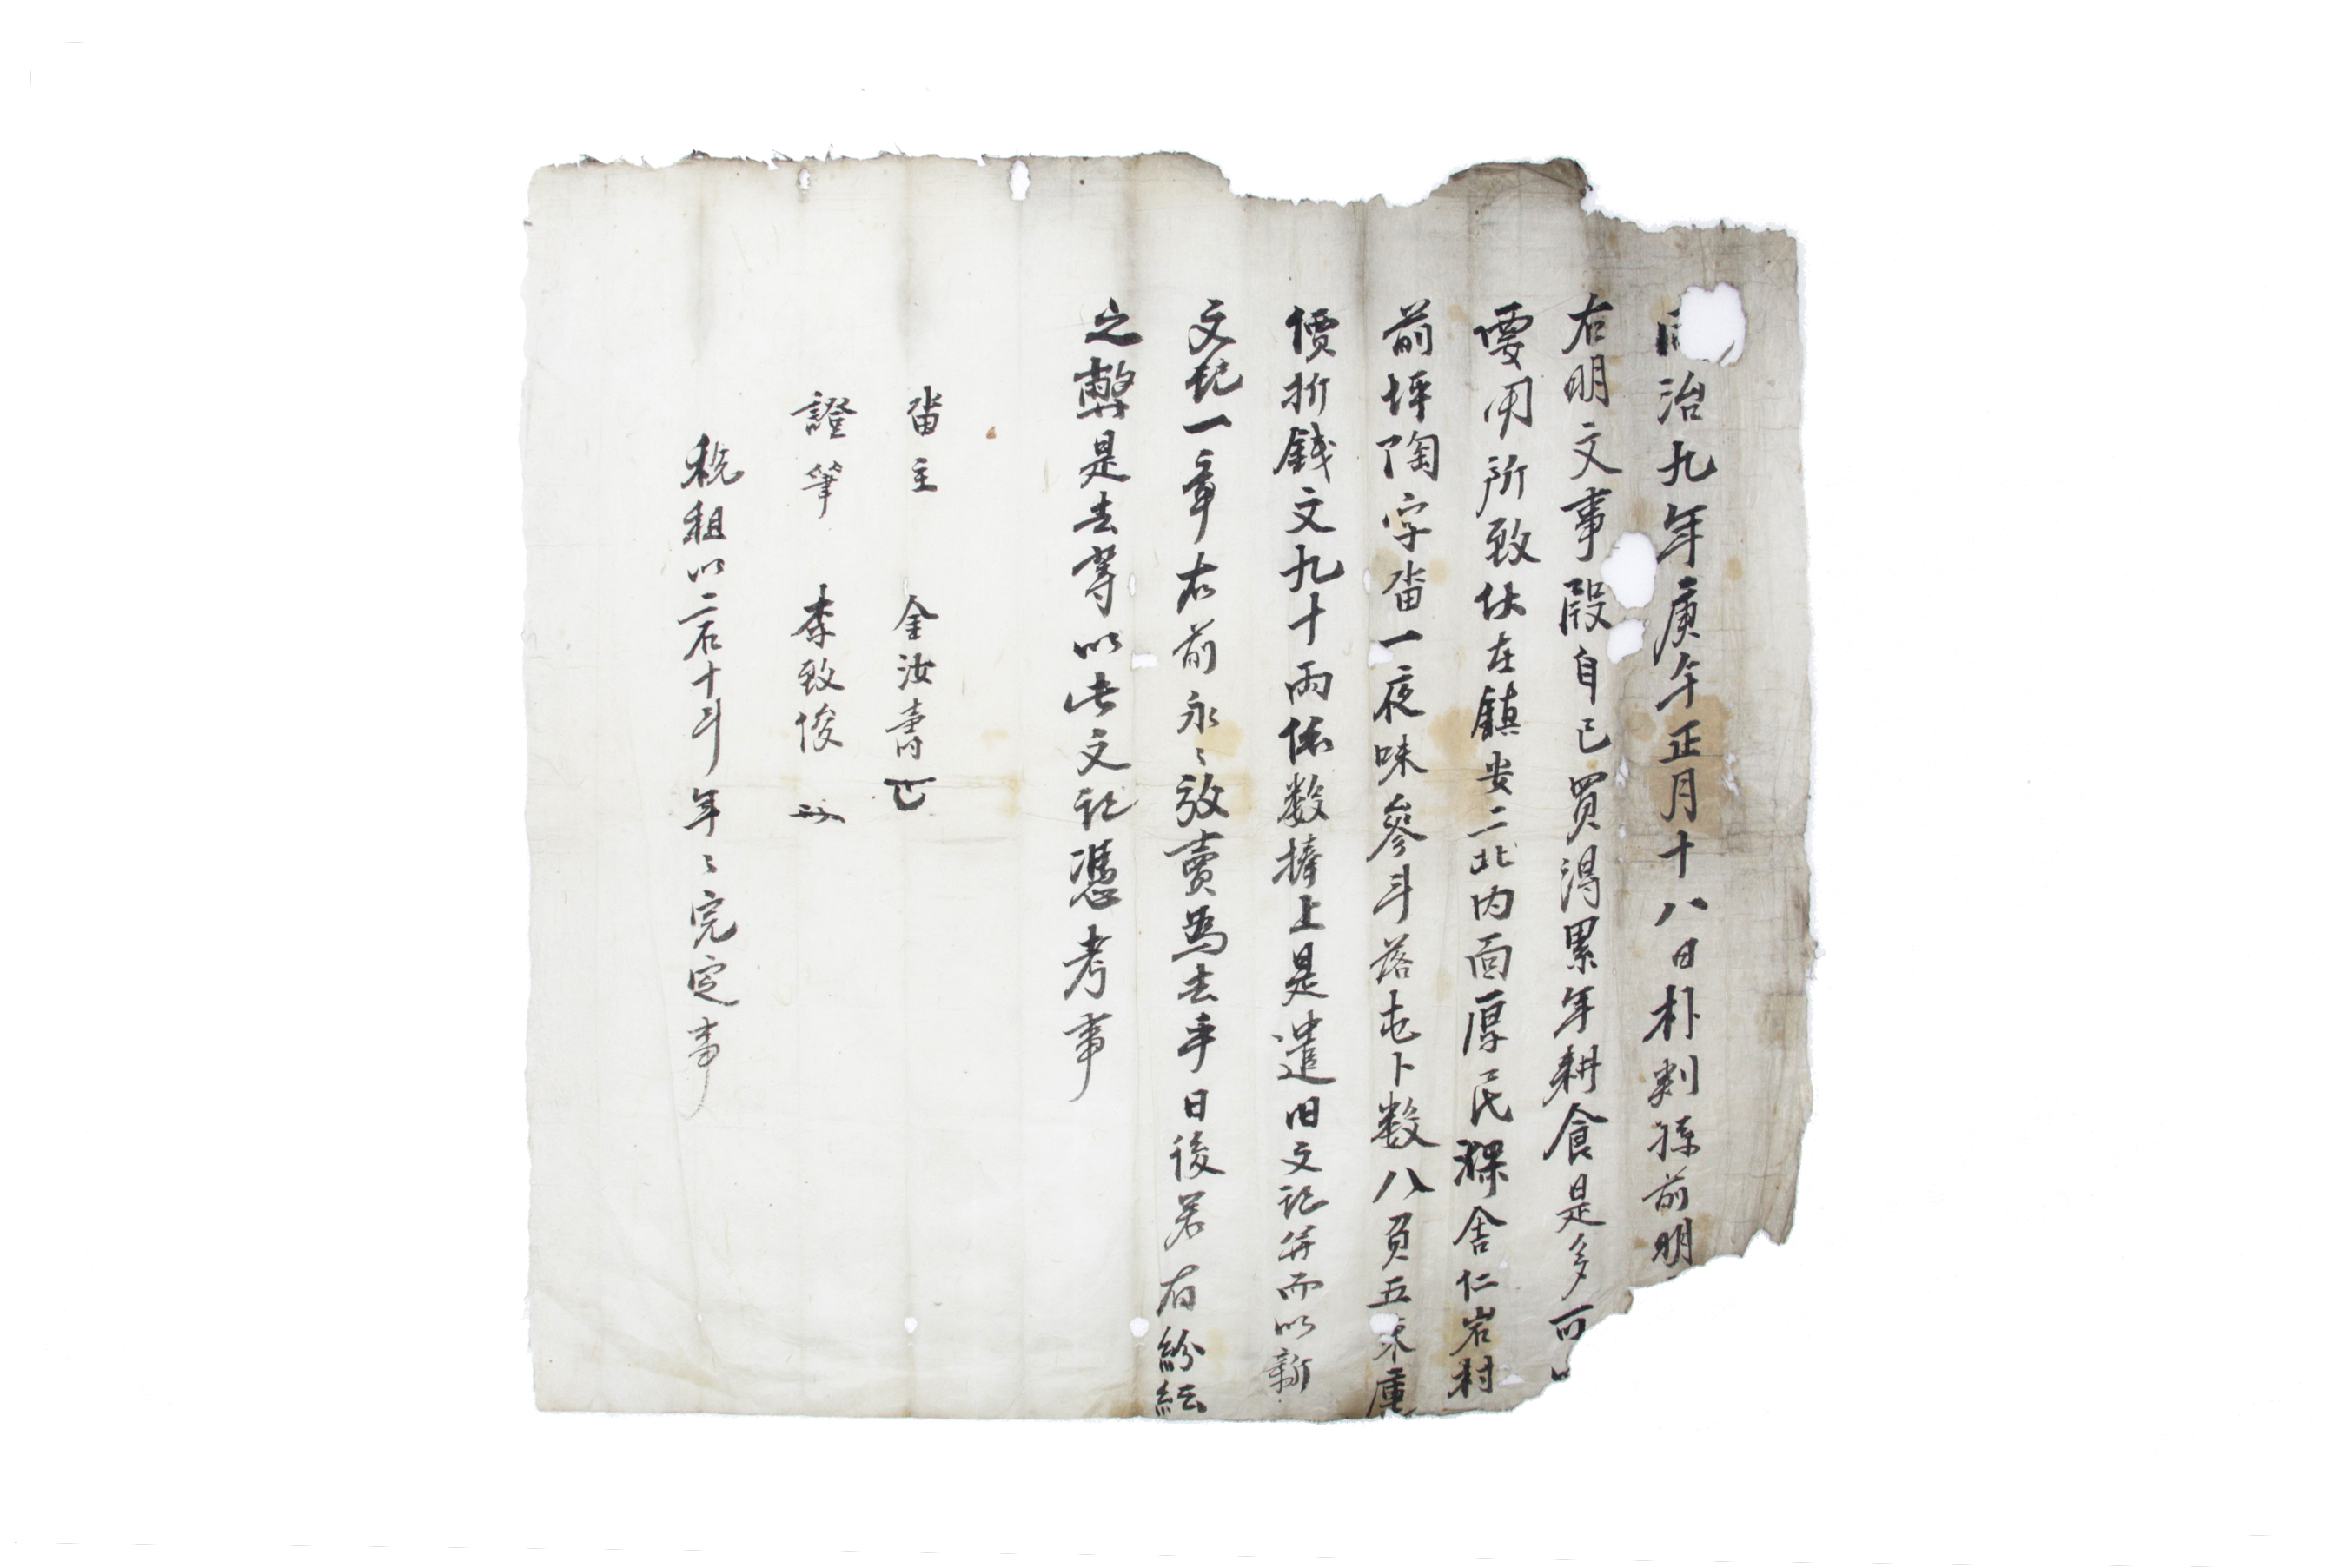 治九年庚午正月十八日朴剡孫前明
右明文事段自己買得累年耕食是多可
要用所致伏在鎮安二北內面厚民潔舍仁岩村
前坪陶字畓一夜味參斗落屯卜數八負五束廤
價折錢文九十兩依数捧上是遣旧文記并而以新
文記一章右前永〻放賣爲去乎日後若有紛紜
之弊是去等以此文記憑考事
畓主 金汝壽
證筆 李致俊
稅租以二石十斗年〻完定事